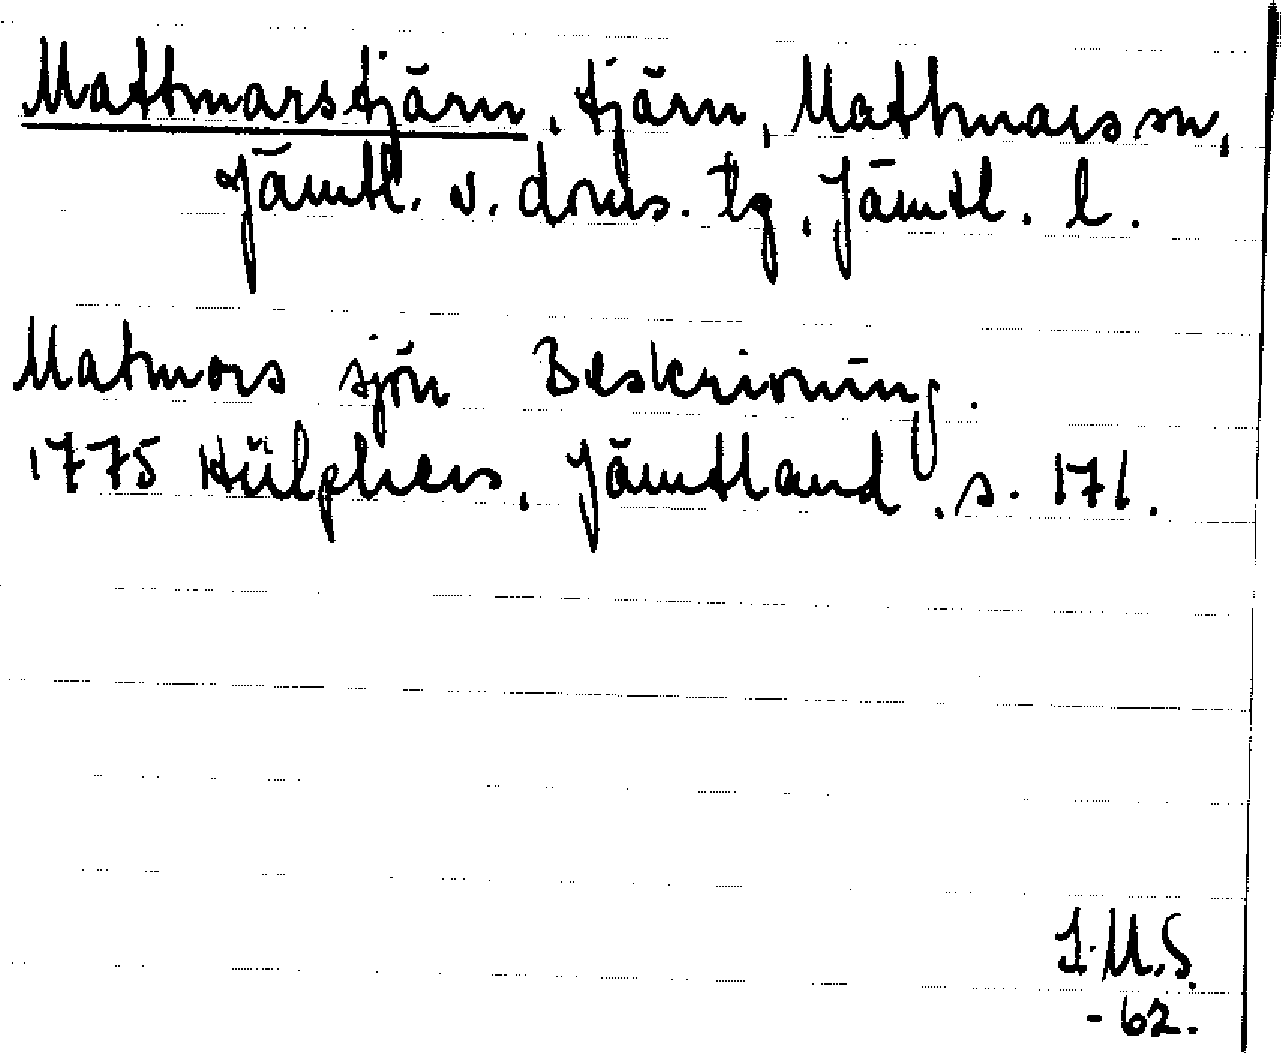 Mattmarstjärn, tjärn, Mattmars sn,
Jämtl. v. doms. tg, Jämtl. l.
Matmors sjön Beskrivning.
1775 Hülphers, Jämtland, s. 171.
I.M.S.
-62.